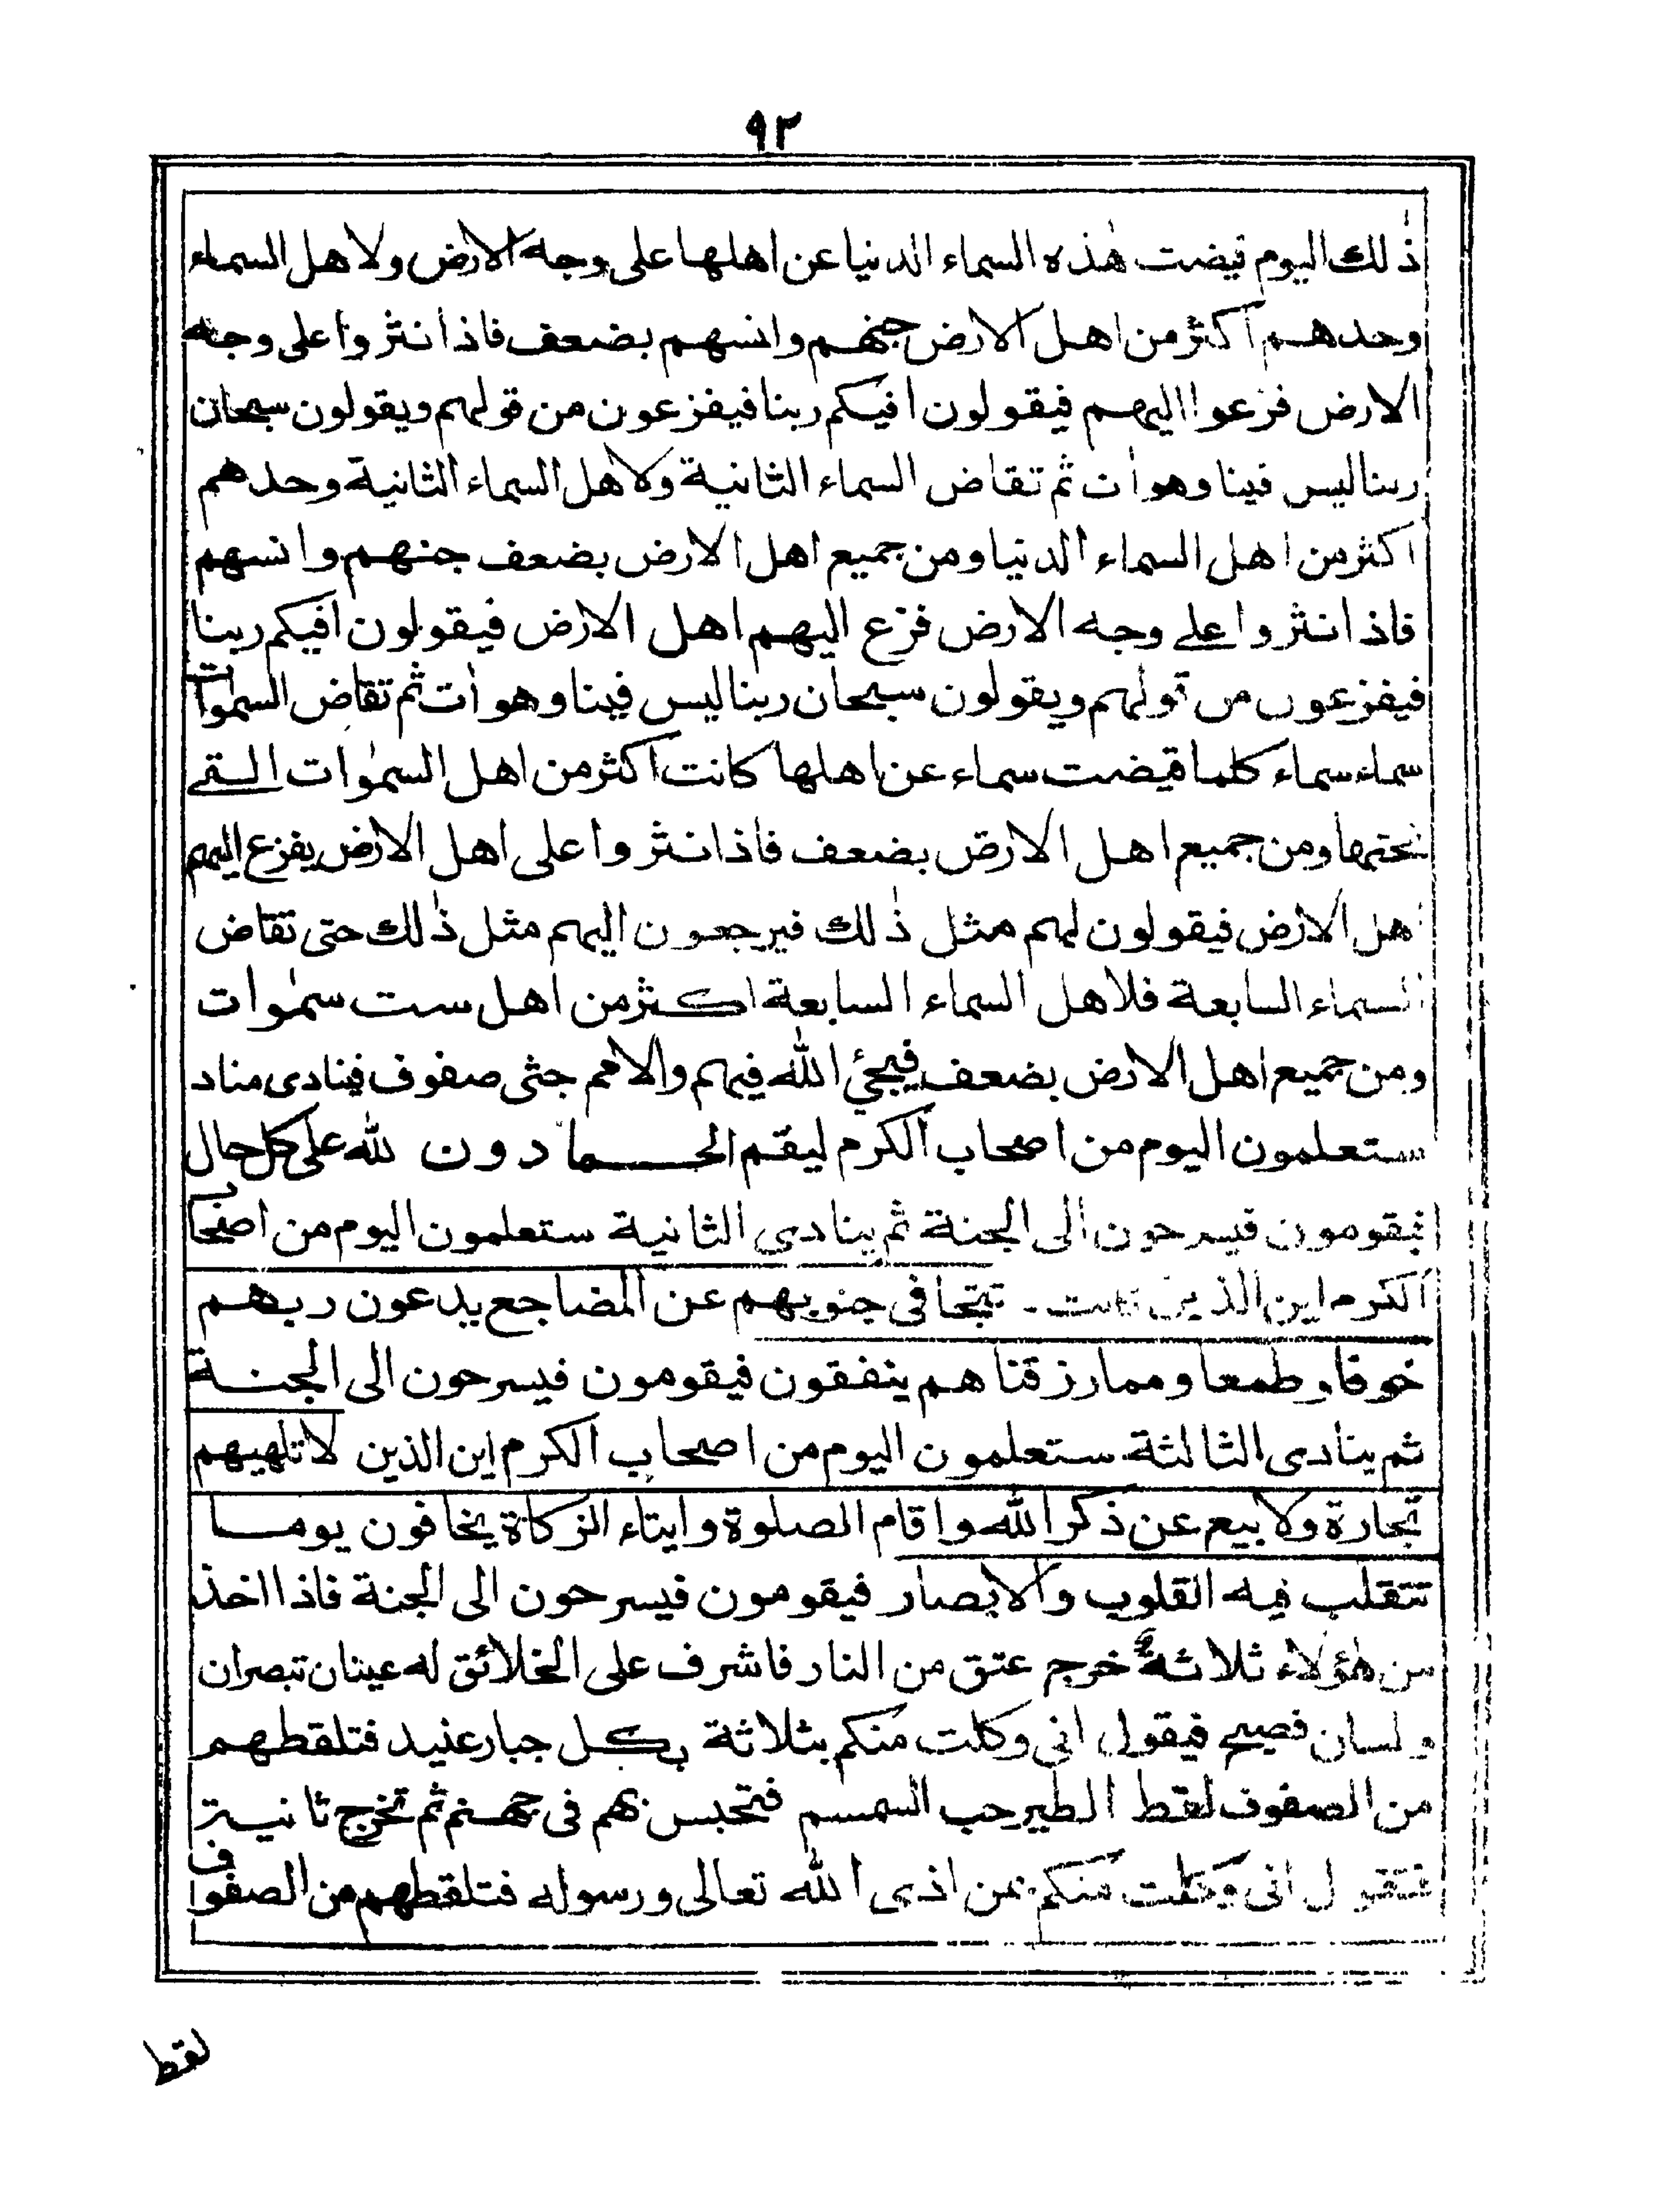 ٩٢
ذٰلك اليوم قيضت هٰذه السماء الدنيا عن اهلها على وجه الارض ولاهل السماء
وحدهم اكثر من اهل الارض جنهم وانسهم بضعف فاذا نثروا على وجه
الارض فزعوا اليهم فيقولون افيكم ربنا فيفزعون من قولهم ويقولون سبحان
ربنا ليس فينا وهو اٰت ثم تقاض السماء الثانية ولاهل السماء الثانية وحدهم
اكثر من اهل السماء الدنيا ومن جميع اهل الارض بضعف جنهم وانسهم
فاذا نثروا على وجه الارض فزع اليهم اهل الارض فيقولون افيكم ربنا
فيفزعون من قولهم ويقولون سبحان ربنا ليس فينا وهو اٰت ثم تقاض السمٰوات
سماء سماء كلما قيضت سماء عن اهلها كانت اكثر من اهل السمٰوات التے
تحتها ومن جميع اهل الارض بضعف فاذا نثروا على اهل الارض يفزع اليهم
اهل الارض فيقولون لهم مثل ذٰلك فيرجعون اليهم مثل ذٰلك حتى تقاض
السماء السابعة فلاهل السماء السابعة اكثر من اهل ست سمٰوات
ومن جميع اهل الارض بضعف فيجئ الله فيهم والامم جثى صفوف فينادى مناد
ستعلمون اليوم من اصحاب الكرم ليقم الحمادون لله على كل حال
فيقومون فيسرحون الى الجنة ثم ينادى الثانية ستعلمون اليوم من اصحاب
الكرم اين الذين كانت تتجافى جنوبهم عن المضاجع يدعون ربهم
خوفا وطمعا ومما رزقناهم ينفقون فيقومون فيسرحون الى الجنة
ثم ينادى الثالثة ستعلمون اليوم من اصحاب الكرم اين الذين لا تلهيهم
تجارة ولا بيع عن ذكر الله واقام الصلوة وايتاء الزكاة يخافون يوما
تتقلب فيه القلوب والابصار فيقومون فيسرحون الى الجنة فاذا اخذ
من هٰؤلاء ثلاثة خرج عتق من النار فاشرف على الخلائق له عينان تبصران
ولسان فصيح فيقول انى وكلت منكم بثلاثة بكل جبار عنيد فتلقطهم
من الصفوف لقط الطير حب السمسم فتحبس بهم فى جهنم ثم تخرج ثانية
فتقول انى وكلت منكم بمن اذى الله تعالى ورسوله فتلقطهم من الصفوف
لقط